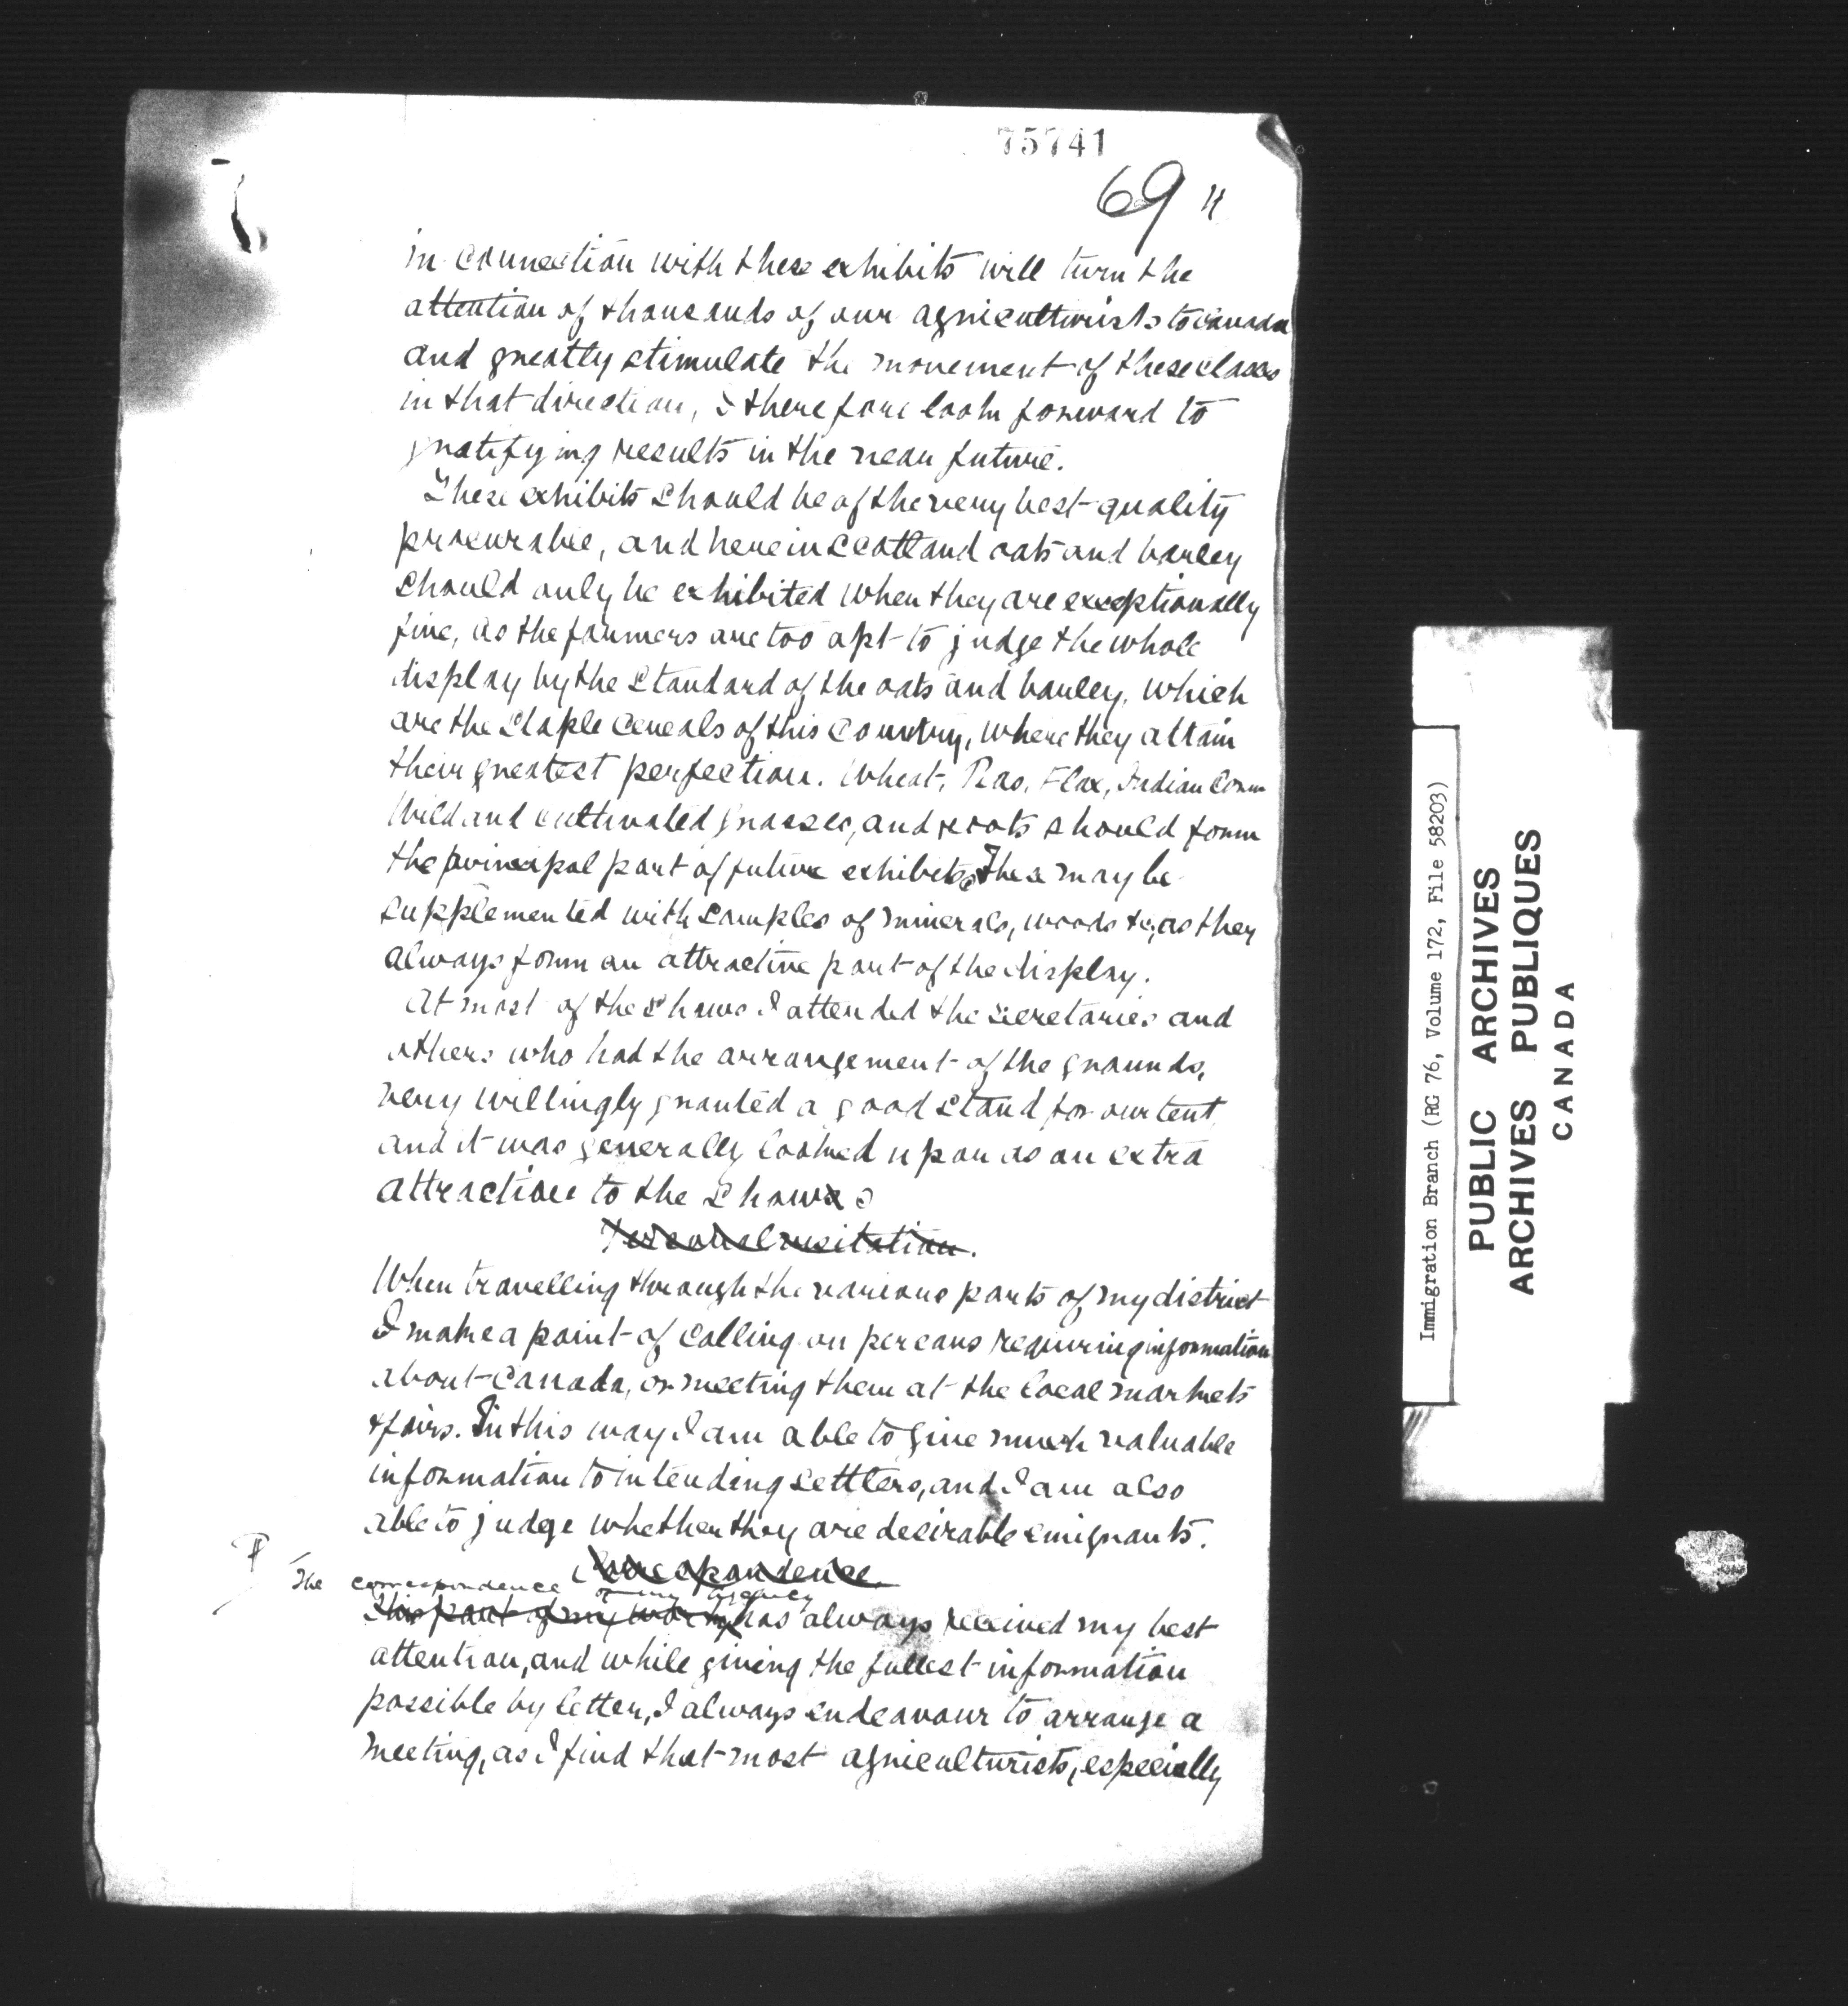 75741
69 11
in connection with these exhibits will turn the
attention of thousands of our agriculturists to Canada
and greatly stimulate the movement of these classes
in that direction, I therefore look forward to
gratifying results in the near future.
These exhibits should be of the very best quality
procurable, and here in Scotland oats and barley
should only be exhibited when they are exceptionally
fine, as the farmers are too apt to judge the whole
display by the standard of the oats and barley, which
are the staple cereals of this country, where they attain
their greatest perfection. Wheat, Peas, Flax, Indian Corn
Wild and cultivated grasses, and roots should form
the principal part of future exhibits. These may be
supplemented with samples of minerals, woods &c, as they
always form an attractive part of the display.
At most of the shows I attended the secretaries and
others who had the arrangement of the grounds,
very willingly granted a good stand for our tent
and it was generally looked upon as an extra
attraction to the shows
Personal visitation.
When travelling through the various parts of my district
I make a point of calling on persons requiring information
about Canada, or meeting them at the local markets
& fairs. In this way I am able to give much valuable
information to intending settlers, and I am also
able to judge whether they are desirable emigrants.
Correspondence.
The correspondence of my Agency
This part of my work has always received my best
attention, and while giving the fullest information
possible by letter, I always endeavour to arrange a
meeting, as I find that most agriculturists, especially
Immigration Branch (RG 76, Volume 172, File 58203)
PUBLIC ARCHIVES
ARCHIVES PUBLIQUES
CANADA